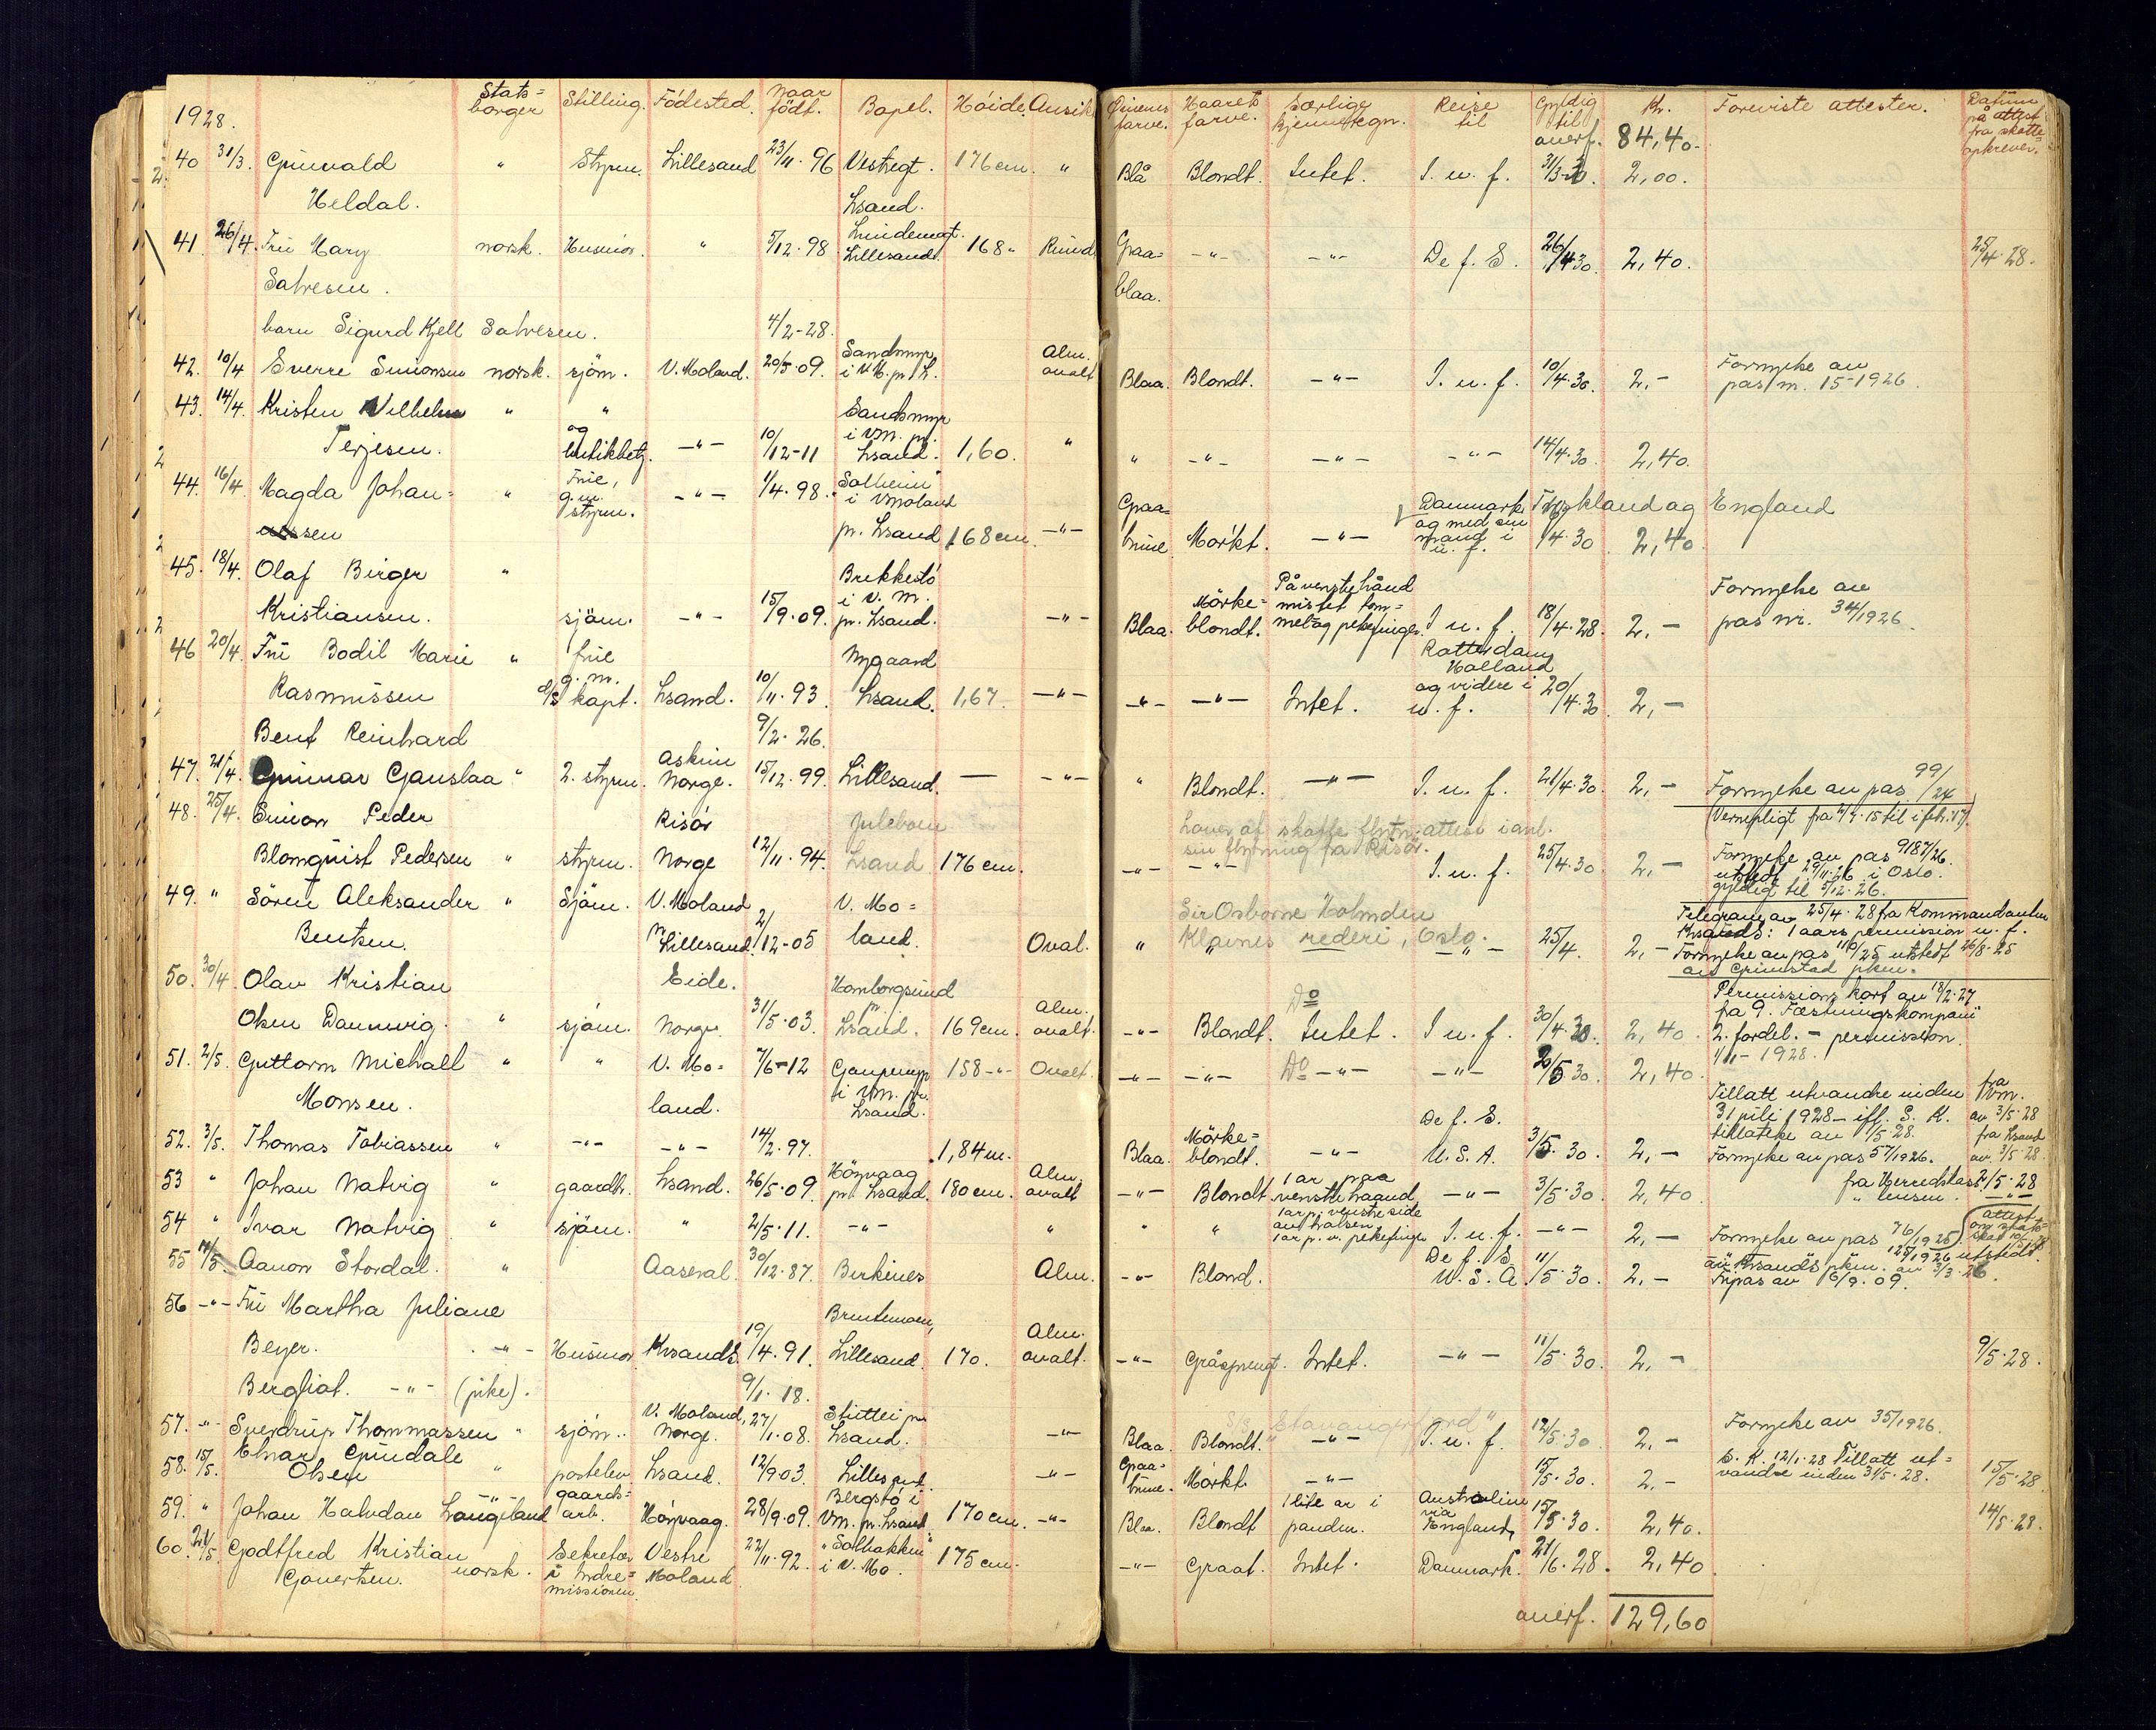 1928. Stats= borger Stilling. Födested. Naar födt. Bopel. Höide Ansikt Öinenes farve. Haarets farve. Særlige kjennetegn. Reise til Gyldig til Kr. Foreviste attester. Datum på attest fra skatte= opkrever.
overf. 84,40.
40 31/3. Grunvald " Styrm. Lillesand 23/11. 96 Vestregt. 176 cm. " Blå Blondt. Intet. I. u. f. 31/3-30. 2,00.
Heldal. Lsand.
41 26/4. Fru Mary norsk. Husmor. " 5/12. 98 Lindemgt. Lillesand. 168 " Rund Graa= -"- -"- De f. S. 26/4 30. 2,40. 25/4. 28.
Salvesen. blaa.
barn Sigurd Kjell Salvesen. 4/2-28.
42. 10/4 Sverre Simonsen norsk. sjöm. V. Moland. 20/5. 09. Sandsmyr i V. M. pr. L. Alm. ovalt Blaa. Blondt. -"- I. u. f. 10/4. 30. 2,- Fornyelse av pas m. 15-1926.
43. 14/4. Kristen Vilhelm " " Sandsmyr
Terjesen. og butikkbetj. -"- 10/12-11 i V.M. pr. Lsand. 1,60. " " -"- -"- -"- 14/4. 30. 2,40.
44. 16/4. Magda Johan= " Frue, g. m. styrm. -"- 1/4. 98. "Solheim" i V. Moland " Graa= Danmark, Tyskland og England
nessen pr. Lsand 168 cm. -"- brune Mörkt. -"- og med sin mand i u. f. /4 30 2,40
45. 18/4. Olaf Birger " Brekkestö
Kristiansen. sjöm. -"- 15/9. 09. i V. M. pr. Lsand. -"- Blaa. Mörke= blondt. På venstre hånd mistet tom= mel og pekefinger. I. u. f. 18/4. 28. 2,- Fornyelse av pas nr. 34/1926.
46 20/4. Fru Bodil Marie " frue Nygaard Rotterdam Holland
Rasmussen g. m. d/s kapt. Lsand. 10/11. 93. Lsand. 1,67. -"- -"- -"- Intet. og videre i u. f. 20/4. 30 2,-
Bent Reinhard 9/2. 26.
47. 21/4. Gunnar Ganslaa " 2. styrm. Askim Norge. 15/12. 99. Lillesand. — -"- " Blondt. -"- I. u. f. 21/4. 30. 2,- Fornyelse av pas 99/24
(Vernepligt fra 4/4. 15 til i feb. 17).
48. 25/4. Simon Peder Risör Juleboen Lover at skaffe flytn. attest i anl. sin flytning fra Risör.
Blomquist Pedersen " styrm. Norge 12/11. 94. Lsand 176 cm. -"- -"- I. u. f. 25/4. 30 2,- Fornyelse av pas 9187/26. utstedt 29/11. 26 i Oslo. gyldig til 5/12. 26.
49. " Sören Aleksander " Sjöm. V. Moland V. Mo= Sir Osborne Holmden Telegram av 25/4. 28 fra Kommandanten
Bentsen. pr. Lillesand. 2/12-05 land. Oval. " Klavnes rederi, Oslo. -"- 25/4. 2,- Krsands: 1 aars permission u. f. Fornyelse av pas 110/25 utstedt 26/8. 25 av Grimstad pkm.
50. 30/4. Olav Kristian Eide. Homborgsund Do Permissions kort av 18/2. 27
Olsen Dannevig. " sjöm. Norge. 31/5. 03. pr. Lsand. 169 cm. Alm. ovalt. -"- Blondt. Intet. I u. f. 30/4. 30. 2,40. fra 9. Festningskompani 2. fordel. - permission. 1/11- 1928.
51. 2/5. Guttorm Michall " " V. Mo= 7/6-12 Gaupemyr 158-"- Ovalt. -"- -"- Do -"- -"- 20/5 30. 2,40.
Monsen. land. i V.M. pr. Lsand. De f. S. Tillatt utvandre inden 31 juli 1928 - iflg. S. K. tillatelse av 1/5. 28. fra V.M. av 3/5. 28
52. 3/5. Thomas Tobiassen " -"- -"- 14/2. 97. 1,84 m. Blaa. Mörke= blondt. -"- U. S. A. 3/5. 30. 2,- Fornyelse av pas 57/1926. fra Lsand av. 3/5. 28.
53 " Johan Natvig " gaardbr. Lsand. 26/5. 09. Höyvaag pr. Lsand. 180 cm. Alm. ovalt -"- Blondt 1 ar paa venstre haand -"- 3/5. 30. 2,40 fra Herredskas. 2/5. 28
54 " Ivar Natvig " sjöm. " 2/5. 11. -"- " " " 1 ar p. venstre side av halsen 1 ar p. v. pekefinger I. u. f. -"- 2,- Fornyelse av pas 76/1925 " lensm. -"-
55 11/5. Aanon Stordal. " Aaseral. 30/12. 87. Birkenes Alm. -"- Blond. De f. S U. S. A. 11/5. 30. 2,- 125/1926 utstedt av Krsands pkm. av 3/3. 26. Fripas av 6/9. 09.
56 -"- Fru Martha Juliane Brentemoen,
Beyer. -"- Husmor Krsands. 19/4. 91. Lillesand. 170. Alm. ovalt. -"- Gråsprengt. Intet. -"- 11/5. 30. 2,- 9/5. 28.
Bergliot. -"- (pike). 9/1. 18.
57. -"- Sverdrup Thommassen " sjöm. V. Moland, Norge. 27/1. 08. Stuttei pr. Lsand. -"- Blaa. Blondt. S/S "Stavangerfjord" -"- I. u. f. 12/5. 30 2,- Fornyelse av 35/1926.
58. 15/5. Einar Grundale Olsen " postelev Lsand. 12/9 03. Lillesand. -"- Graa= brune. Mörkt -"- 15/5. 30. 2,- S. K. 12/1. 28 Tillatt ut= vandre inden 31/5. 28. 15/5. 28
59. " Johan Halvdan Langeland -"- gaards= arb. Höyvaag. 28/9. 09. Bergstö i V.M. pr. Lsand. 170 cm. -"- Blaa. Blondt 1 lite ar i panden. Australien via England, 15/5. 30. 2,40. 14/5. 28.
60. 21/5 Godtfred Kristian Govertsen. norsk. Sekretær i Indre= missionen Vestre Moland 22/11. 92. "Solbakken" i V. Mo. 175 cm. -"- Graat. Intet. Danmark. 21/6. 28. 2,40
overf. 129,60